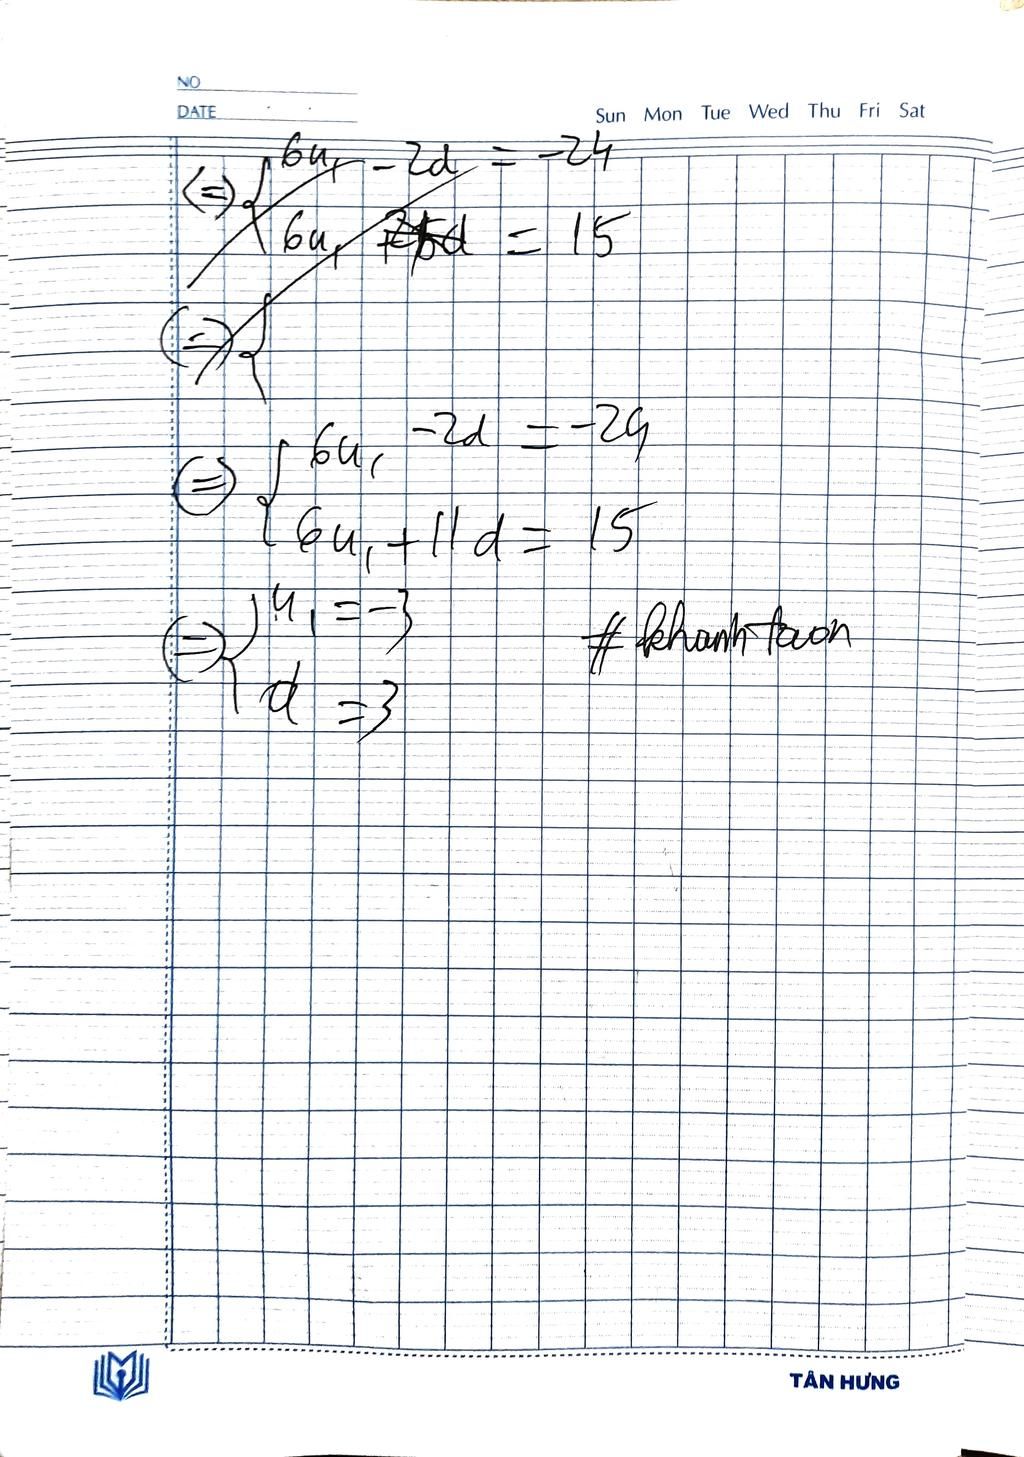 NO
DATE
Sun Mon Tue Wed Thu Fri Sat
(=) { 6u₁ - 2d = -24
6u₁ d = 15
(=) {
(=) { 6u₁ - 2d = -24
6u₁ + 11d = 15
(=) { u₁ = -3
# khanhtoon
d = 3
TÂN HƯNG